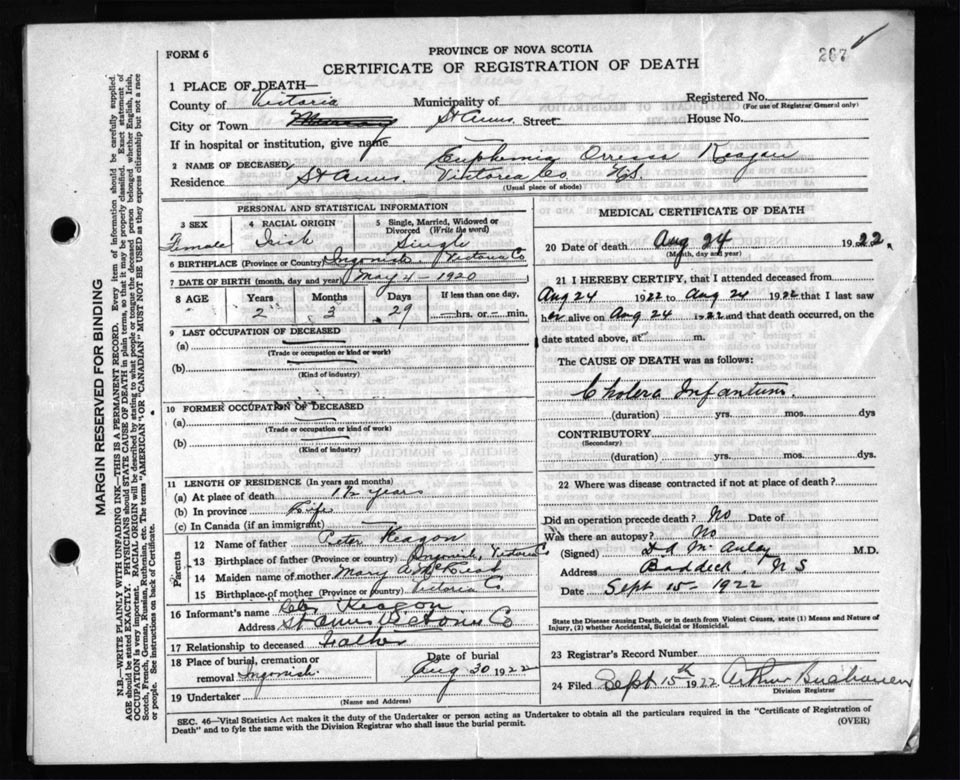 FORM 6
PROVINCE OF NOVA SCOTIA
267
CERTIFICATE OF REGISTRATION OF DEATH
1 PLACE OF DEATH—
County of Victoria Municipality of Registered No.
(For use of Registrar General only)
City or Town St Anns Street House No.
If in hospital or institution, give name
2 NAME OF DECEASED Euphemia
Residence St Anns. Victoria Co NS.
(Usual place of abode)
PERSONAL AND STATISTICAL INFORMATION
3 SEX 4 RACIAL ORIGIN 5 Single, Married, Widowed or Divorced (Write the word)
Female Irish Single
6 BIRTHPLACE (Province or Country) Ingonish. Victoria Co
7 DATE OF BIRTH (month, day and year) May 4 - 1920
8 AGE Years Months Days If less than one day,
2 3 29 hrs. or min.
9 LAST OCCUPATION OF DECEASED
(a)
(Trade or occupation or kind or work)
(b)
(Kind of industry)
10 FORMER OCCUPATION OF DECEASED
(a)
(Trade or occupation or kind of work)
(b)
(Kind of industry)
11 LENGTH OF RESIDENCE (In years and months)
(a) At place of death 1½ years
(b) In province Life
(c) In Canada (if an immigrant)
Parents
12 Name of father Peter Reagon
13 Birthplace of father (Province or country) Ingonish, Victoria Co
14 Maiden name of mother Mary A
15 Birthplace of mother (Province or country) Victoria Co.
16 Informant's name Peter Reagon
Address St Anns Victoria Co
17 Relationship to deceased Father
18 Place of burial, cremation or removal Ingonish. Date of burial Aug 30 1922
19 Undertaker
(Name and Address)
MEDICAL CERTIFICATE OF DEATH
20 Date of death Aug 24 1922.
(Month, day and year)
21 I HEREBY CERTIFY, that I attended deceased from
Aug 24 1922 to Aug 24 1922 that I last saw
her alive on Aug 24 1922 and that death occurred, on the
date stated above, at m.
The CAUSE OF DEATH was as follows:
Cholera Infantum.
(duration) yrs. mos. dys
CONTRIBUTORY
(Secondary)
(duration) yrs. mos. dys.
22 Where was disease contracted if not at place of death?
Did an operation precede death? No Date of
Was there an autopsy? No
(Signed) McAulay M.D.
Address Baddeck, N S
Date Sept 15th 1922
State the Disease causing Death, or in death from Violent Causes, state (1) Means and Nature of Injury, (2) whether Accidental, Suicidal or Homicidal.
23 Registrar's Record Number
24 Filed Sept 15th 1922 Arthur Buchanan
Division Registrar
SEC. 46—Vital Statistics Act makes it the duty of the Undertaker or person acting as Undertaker to obtain all the particulars required in the "Certificate of Registration of
Death" and to fyle the same with the Division Registrar who shall issue the burial permit. (OVER)
MARGIN RESERVED FOR BINDING
N.B.—WRITE PLAINLY WITH UNFADING INK—THIS IS A PERMANENT RECORD. Every item of information should be carefully supplied.
AGE should be stated EXACTLY. PHYSICIANS should STATE CAUSE OF DEATH in plain terms, so that it may be properly classified. Exact statement of
OCCUPATION is very important. RACIAL ORIGIN will be described by stating to what people or tongue the deceased person belonged whether English, Irish,
Scotch, French, German, Russian, Ruthenian, etc. The terms "AMERICAN" OR "CANADIAN" MUST NOT BE USED as they express citizenship but not a race
or people. See instructions on back of Certificate.